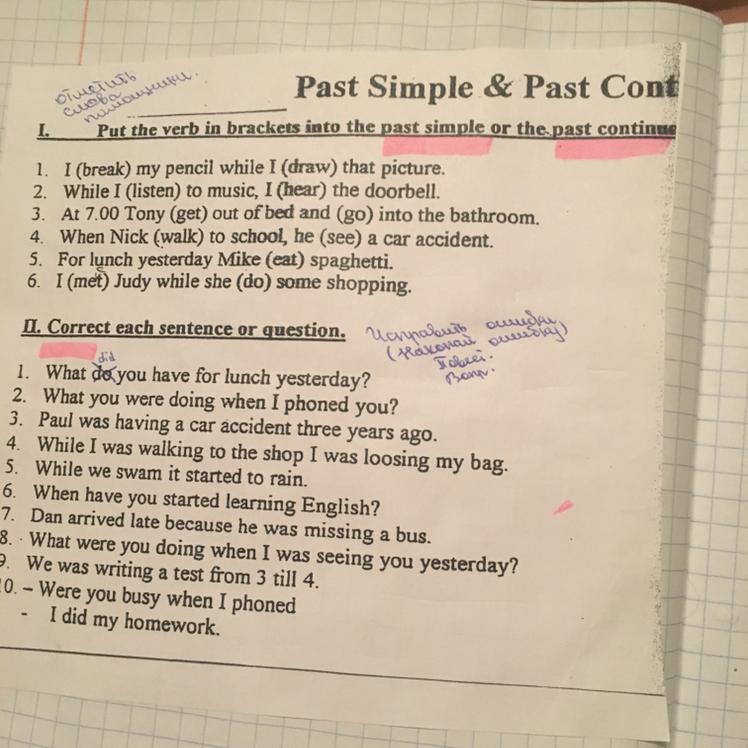 отметить
слова
Past Simple & Past Cont
I. Put the verb in brackets into the past simple or the past continue
1. I (break) my pencil while I (draw) that picture.
2. While I (listen) to music, I (hear) the doorbell.
3. At 7.00 Tony (get) out of bed and (go) into the bathroom.
4. When Nick (walk) to school, he (see) a car accident.
5. For lunch yesterday Mike (eat) spaghetti.
6. I (met) Judy while she (do) some shopping.
II. Correct each sentence or question.
Исправить ошибки
ошибку)
did
1. What do you have for lunch yesterday?
2. What you were doing when I phoned you?
3. Paul was having a car accident three years ago.
4. While I was walking to the shop I was loosing my bag.
5. While we swam it started to rain.
6. When have you started learning English?
7. Dan arrived late because he was missing a bus.
8. What were you doing when I was seeing you yesterday?
9. We was writing a test from 3 till 4.
10. – Were you busy when I phoned
- I did my homework.